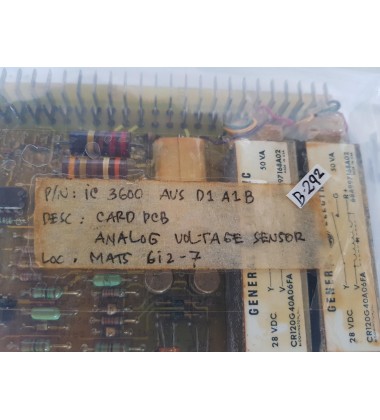 P/N: IC 3600 AVS D1 A1B
DESC: CARD PCB
ANALOG VOLTAGE SENSOR
LOC. MATS 612-7
B-292
50 VA
GENERAL
28 VDC
CR120G40A06FA
GENERAL
28 VDC
CR120G40A06FA